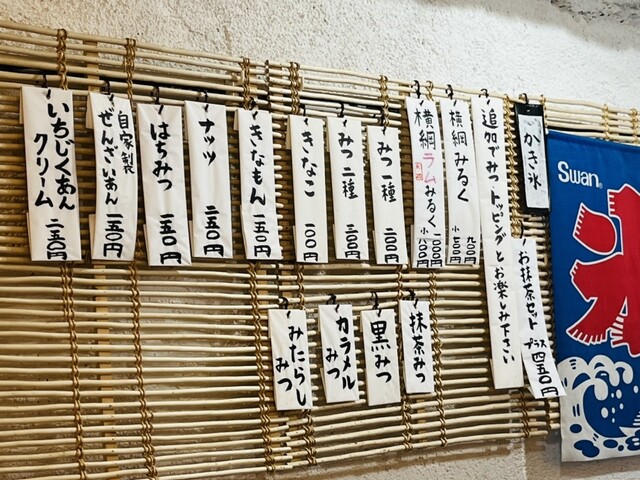 かき氷
追加でみつ、トッピングとお楽しみ下さい
お抹茶セット
プラス四五〇円
横綱みるく
小 七〇〇円
九〇〇円
横綱ラムみるく
小 八〇〇円
一〇〇〇円
みつ一種
二〇〇円
みつ二種
三〇〇円
きなこ
一〇〇円
きなもん
一五〇円
ナッツ
二五〇円
はちみつ
一五〇円
自家製
ぜんざいあん
一五〇円
いちじくあん
クリーム
二五〇円
抹茶みつ
黒みつ
カラメル
みつ
みたらし
みつ
Swan
氷
Swan